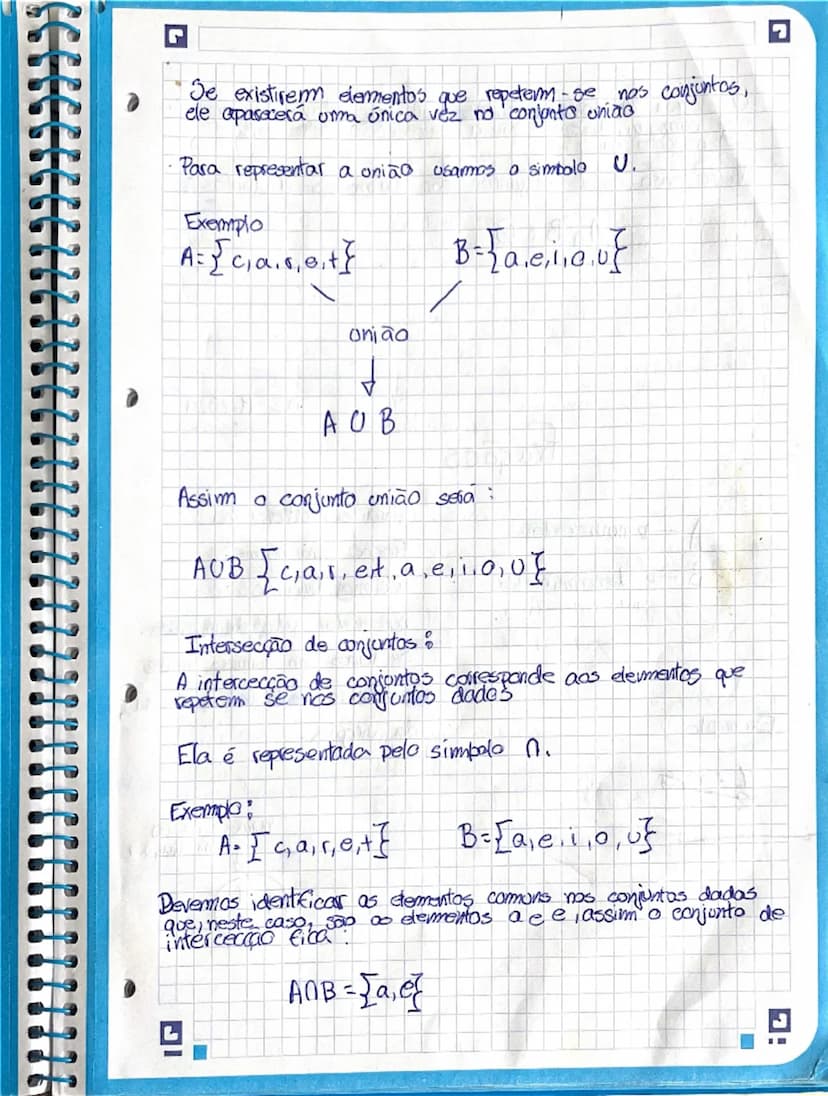 Se existirem elementos que repetem-se nos conjuntos,
ele aparecerá uma única vez no conjunto união
Para representar a união usamos o simbolo U.
Exemplo
A={c,a,r,e,t} B={a,e,i,o,u}
união
A U B
Assim o conjunto união será:
AUB {c,a,r,e,t,a,e,i,o,u}
Intersecção de conjuntos:
A intercecção de conjuntos corresponde aos elementos que
repetem se nos conjuntos dados
Ela é representada pelo símbolo ∩.
Exemplo:
A={c,a,r,e,t} B={a,e,i,o,u}
Devemos identificar os elementos comuns nos conjuntos dados
que, neste caso, são os elementos a e e, assim o conjunto de
intercecção fica:
A∩B={a,e}